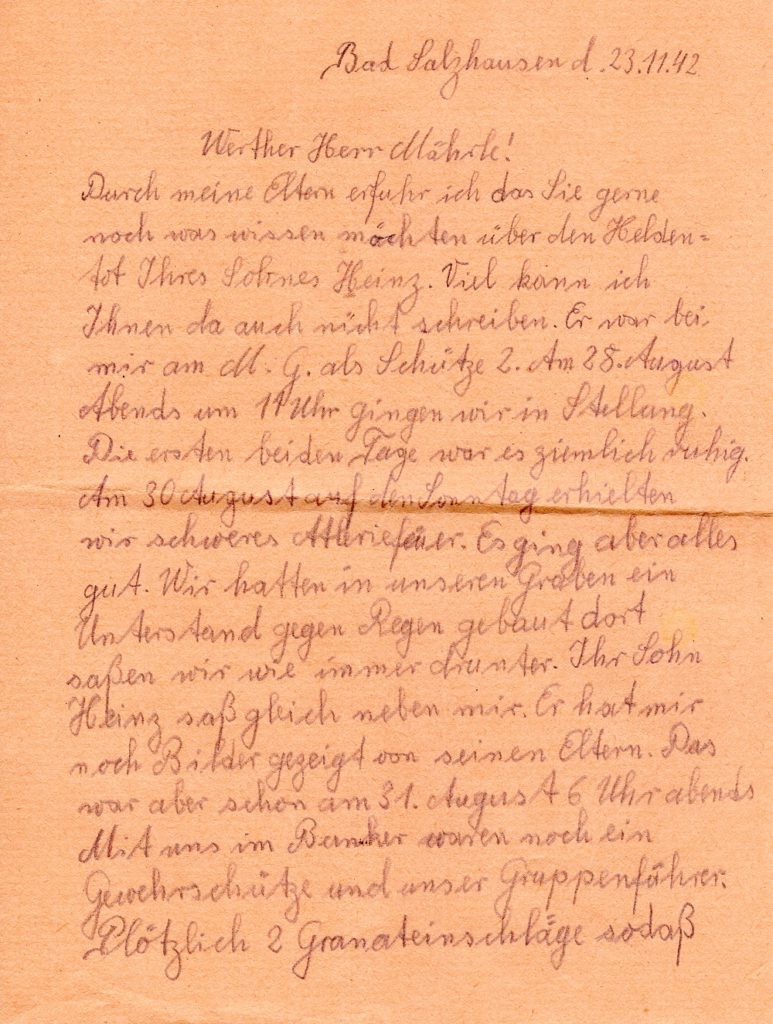 Bad Salzhausen d. 23.11.42
Werther Herr Mährle!
Durch meine Eltern erfuhr ich das Sie gerne
noch was wissen möchten über den Helden=
tot Ihres Sohnes Heinz. Viel kann ich
Ihnen da auch nicht schreiben. Er war bei
mir am M. G. als Schütze 2. Am 28. August
Abends um 11 Uhr gingen wir in Stellung.
Die ersten beiden Tage war es ziemlich ruhig.
Am 30 August auf den Sonntag erhielten
wir schweres Attriefeuer. Es ging aber alles
gut. Wir hatten in unseren Graben ein
Unterstand gegen Regen gebaut dort
saßen wir wie immer drunter. Ihr Sohn
Heinz saß gleich neben mir. Er hat mir
noch Bilder gezeigt von seinen Eltern. Das
war aber schon am 31. August 6 Uhr abends
Mit uns im Bunker waren noch ein
Gewehrschütze und unser Gruppenführer.
Plötzlich 2 Granateinschläge sodaß